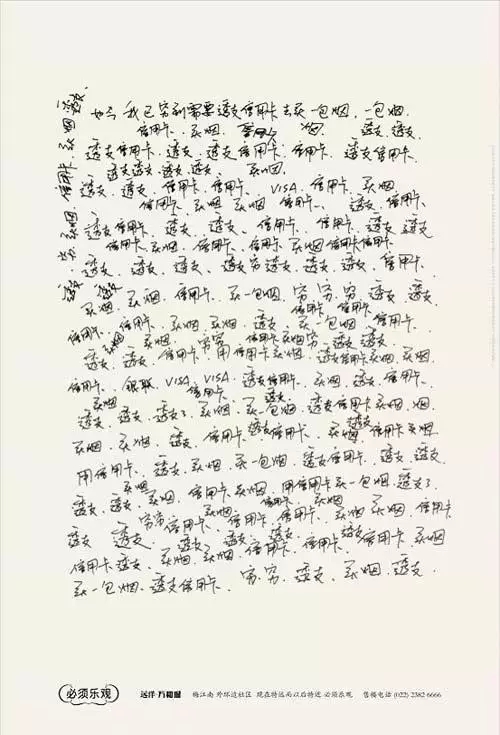 如今我已穷到需要透支信用卡去买一包烟，一包烟.
信用卡、买烟、信用卡 烟. 透支、透支.
透支信用卡、透支、透支信用卡、信用卡、透支信用卡.
透支透支、透支、透支、 买烟.
透支、透支、信用卡、信用卡、VISA、信用卡、买烟
信用卡、买烟 买烟 信用卡、 透支、信用卡、
透支信用卡、透支、透支、信用卡、信用卡、透支 透支
信用卡、买烟、信用卡、信用卡、买烟信用卡信用卡.
透支、透支、透支、透支穷透支、透支、透支、信用卡、
买烟、买烟、信用卡、买一包烟、穷、穷、穷、透支、透支、
信用卡、信用卡、买烟、买烟、透支、买一包烟、信用卡、
买烟、买烟、穷穷、信用卡买烟穷、透支、透支
透支、透支、信用卡、用信用卡买烟、透支信用卡买烟、买烟
信用卡、银联、VISA、VISA、透支信用卡、买烟、透支、信用卡、
买烟 信用卡、 透支
透支、透支、透支了、买烟、买一包烟、透支信用卡买烟、烟
买烟、买烟、透支、信用卡透支信用卡、买烟、信用卡买烟
用信用卡、透支、买烟、买一包烟、透支信用卡、透支、透支
透支、透支、买烟、信用卡买烟、用信用卡买一包烟、透支了、
穷穷、信用卡、信用卡、信用卡、买烟、买烟、信用卡
透支 透支 透支、 透支、 透支
信用卡透支、买烟、买烟、信用卡、信用卡、信用卡、买烟
买一包烟、透支信用卡、穷、穷、透支、买烟、透支、
透支、买烟、信用卡、买烟、穷、透支 透支
必须乐观
远洋·万和城 梅江南 外环边社区 现在特远而以后特近 必须乐观 售楼电话 (022) 2382 6666